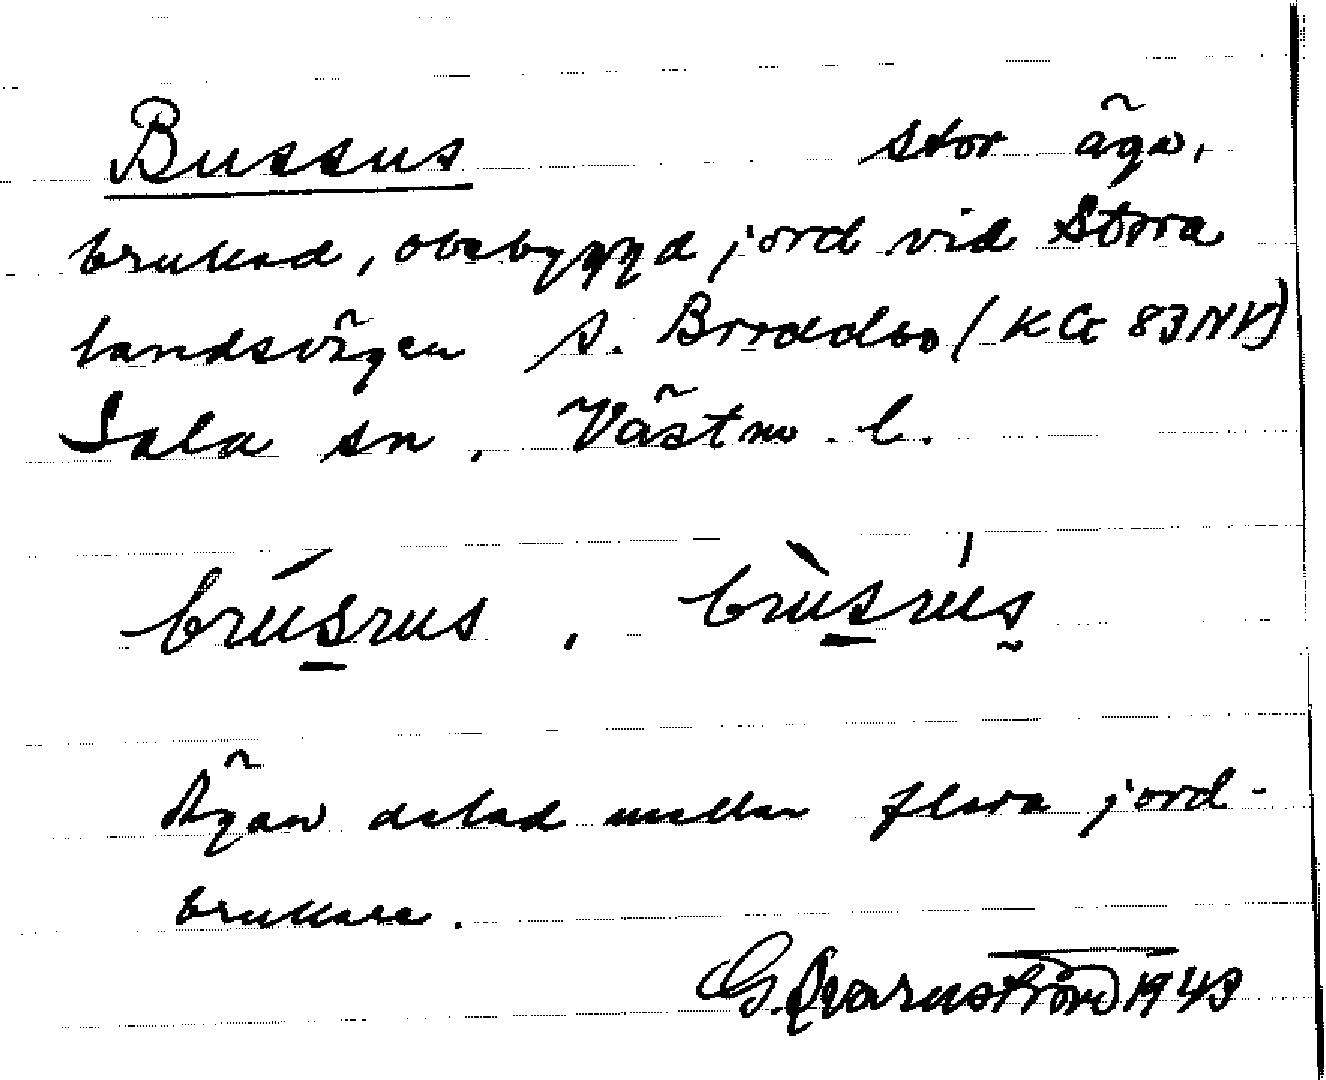 Bussus stor äga,
brukad, obebyggd jord vid Stora
landsvägen S. Broddbo (KG 83NV)
Sala sn. Västm. l.
brúsrus, brùsrús
Ägan delad mellan flera jord-
brukare.
G. Qvarnström 1943